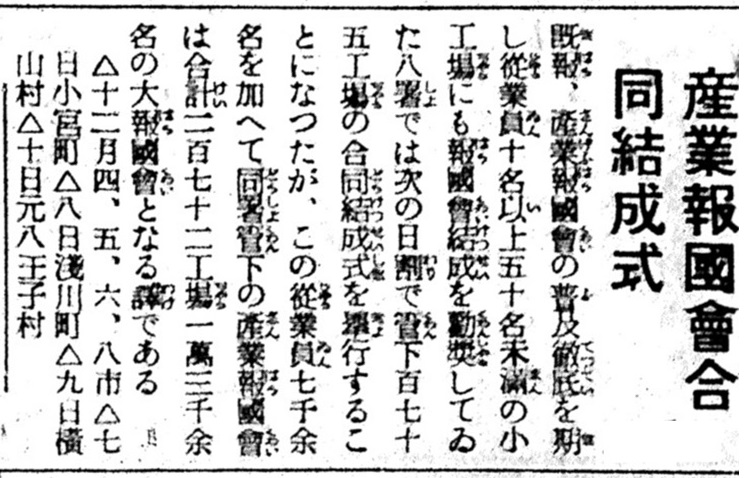 産業報國會合
同結成式
既報、産業報國會の普及徹底を期
し從業員十名以上五十名未滿の小
工場にも報國會結成を勸奬してゐ
た八署では次の日割で管下百七十
五工場の合同結成式を擧行するこ
とになつたが、この從業員七千余
名を加へて同署管下の産業報國會
は合計二百七十二工場一萬三千余
名の大報國會となる譯である
△十二月四、五、六、八市△七
日小宮町△八日淺川町△九日横
山村△十日元八王子村